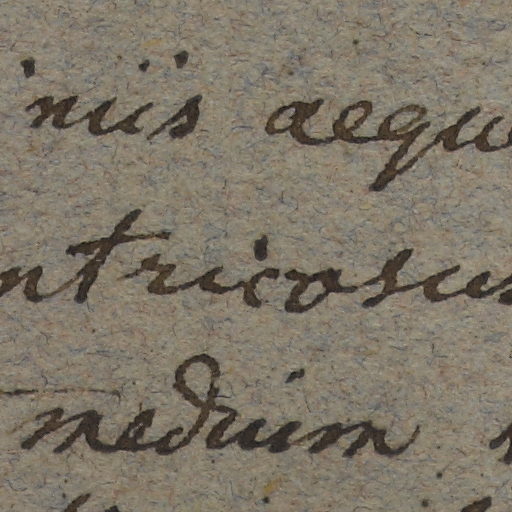 niis aequ
ntricosus
medium